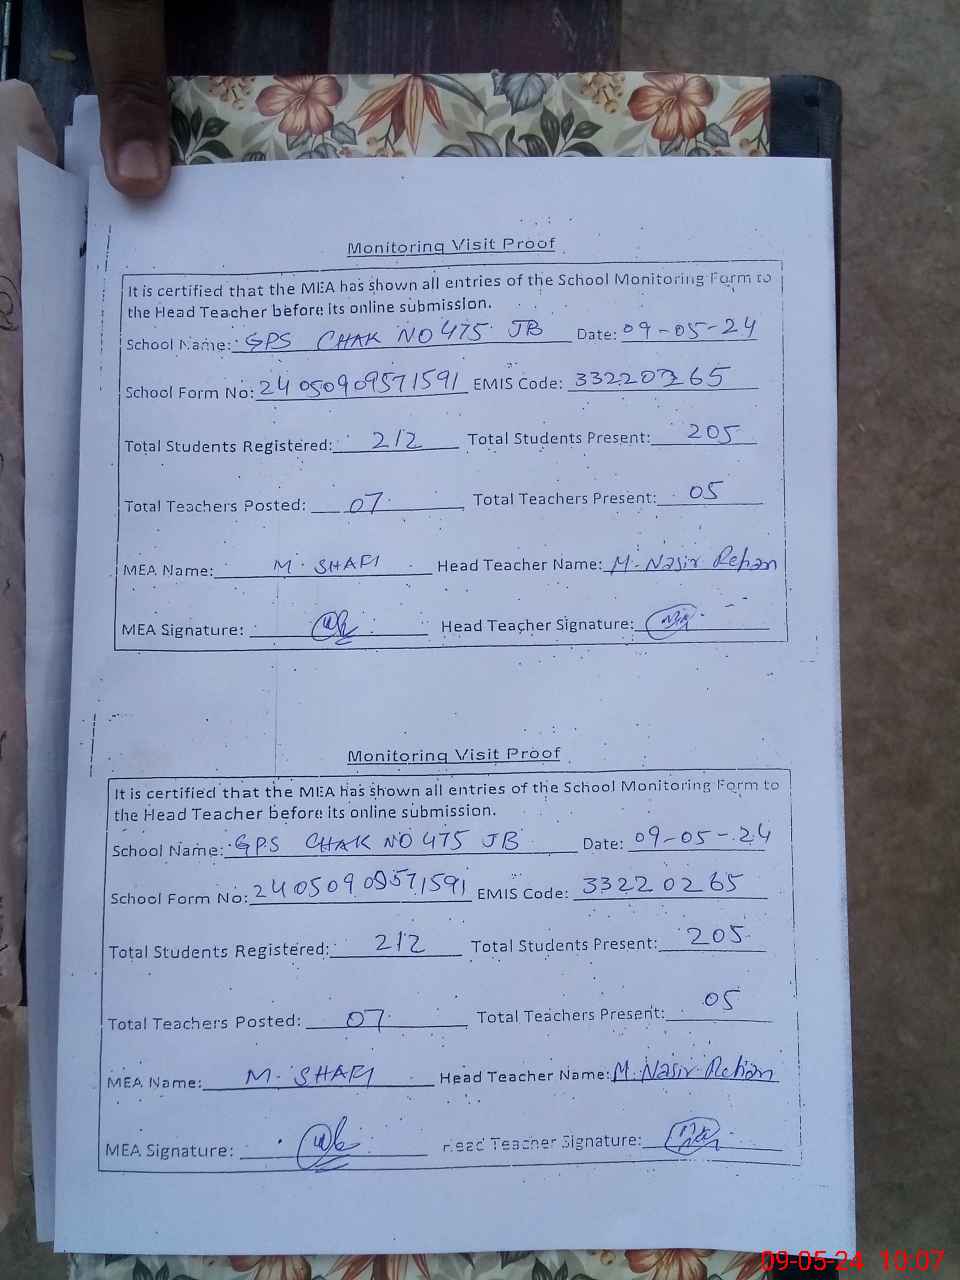 Monitoring Visit Proof
It is certified that the MEA has shown all entries of the School Monitoring Form to
the Head Teacher before its online submission.
School Name: GPS CHAK NO 475 JB Date: 09-05-24
School Form No: 2405090957 1591 EMIS Code: 33220265
Total Students Registered: 212 Total Students Present: 205
Total Teachers Posted: 07 Total Teachers Present: 05
MEA Name: M. SHAFI Head Teacher Name: M. Nasir Rehan
MEA Signature: Head Teacher Signature:
Monitoring Visit Proof
It is certified that the MEA has shown all entries of the School Monitoring Form to
the Head Teacher before its online submission.
School Name: GPS CHAK NO 475 JB Date: 09-05-24
School Form No: 24050909571591 EMIS Code: 33220265
Total Students Registered: 212 Total Students Present: 205
Total Teachers Posted: 07 Total Teachers Present: 05
MEA Name: M. SHAFI Head Teacher Name: M. Nasir Rehan
MEA Signature: Head Teacher Signature:
09-05-24 10:07